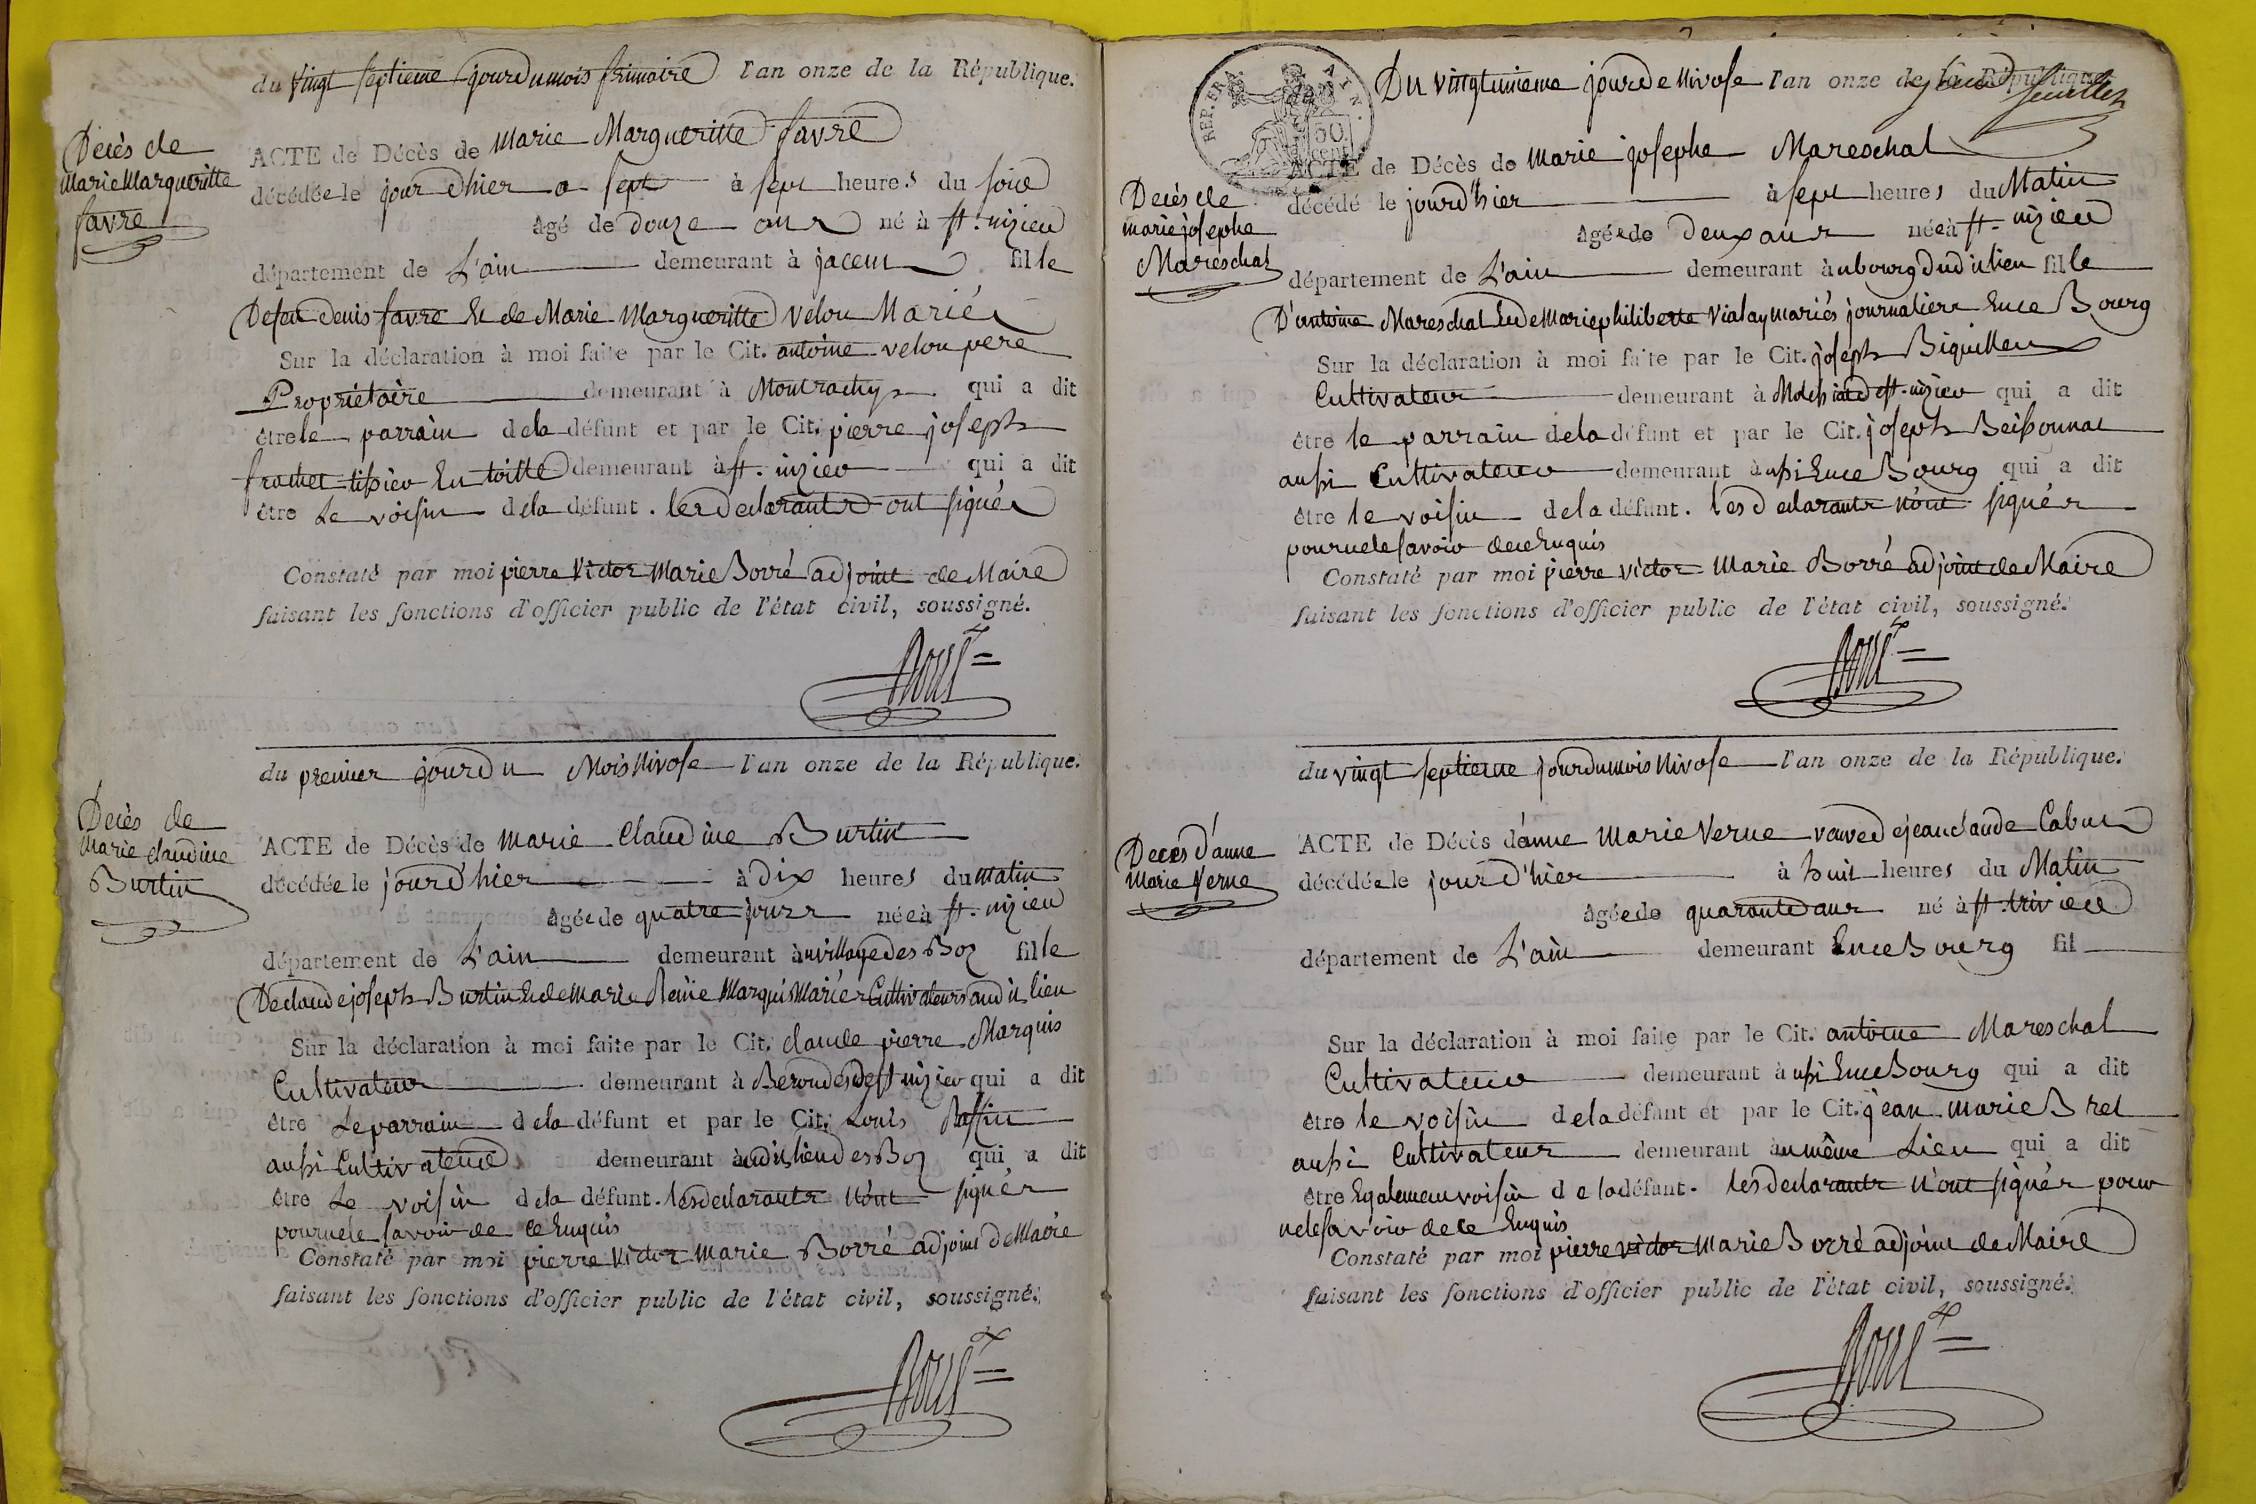 du vingt septieme jour du mois frimaire l'an onze de la République.
Décès de
marie Margueritte
favre
ACTE de Décès de marie Margueritte favre
décédée le jour d'hier a sept à sept heures du soir
âgé de douze ans né à st. nizieu
département de L'ain demeurant à jaceur fille
De feu denis favre Et de Marie Margueritte velou Mariés
Sur la déclaration à moi faite par le Cit. antoine velou pere
Propriétaire demeurant à Montrachy qui a dit
être le parrain de la défunt et par le Cit. pierre joseph
frachet tissier En toille demeurant à st. nizier qui a dit
être Le voisin de la défunt. les declarants ont signés
Constaté par moi pierre victor Marie Borré adjoint de Maire
faisant les fonctions d'officier public de l'état civil, soussigné.
du premier jour du Mois Nivose l'an onze de la République.
Decès de
Marie claudine
Burtin
ACTE de Décès de marie Claudine Burtin
décédée le jour d'hier à dix heures du matin
âgée de quatre jours née à st. nizieu
département de L'ain demeurant au village des Boz fille
De claude joseph Burtin Et de Marie Reine Marqui Mariés Cultivateurs audit lieu
Sur la déclaration à moi faite par le Cit. claude pierre Marquis
Cultivateur demeurant à Beroudes de st nizier qui a dit
être Le parrain de la défunt et par le Cit. Louis Raffin
aussi Cultivateur demeurant audit lieu des Boz qui a dit
être Le voisin de la défunt. les declarants n'ont signés
pour ne le savoir de ce Enquis
Constaté par moi pierre victor marie Borré adjoint de Maire
faisant les fonctions d'officier public de l'état civil, soussigné.
REP. FRA. 50 cent
Du vingt unieme jour de Nivose l'an onze de la République
feuillet
ACTE de Décès de marie josephe Mareschal
Decès de
marie josephe
Mareschal
décédé le jour d'hier à sept heures du Matin
âgée de deux ans née à st. nizieu
département de L'ain demeurant au bourg dudit lieu fille
D'antoine Mareschal Et de Marie philiberte Vialay mariés journaliers En ce Bourg
Sur la déclaration à moi faite par le Cit. joseph Biguilleu
Cultivateur demeurant à de st. nizier qui a dit
être le parrain de la défunt et par le Cit. joseph Beissonnat
aussi Cultivateur demeurant aussi En ce Bourg qui a dit
être le voisin de la défunt. les declarants n'ont signés
pour ne le savoir de ce Enquis
Constaté par moi pierre victor Marie Borré adjoint de Maire
faisant les fonctions d'officier public de l'état civil, soussigné.
du vingt septieme jour du mois Nivose l'an onze de la République.
Deces d'anne
Marie Verne
ACTE de Décès d'anne Marie Verne veuve de jean claude Cabut
décédée le jour d'hier à huit heures du Matin
âgée de quarante ans né à st trivier
département de L'ain demeurant En ce Bourg fil
Sur la déclaration à moi faite par le Cit. antoine Mareschal
Cultivateur demeurant aussi En ce Bourg qui a dit
être le voisin de la défunt et par le Cit. jean marie Bret
aussi Cultivateur demeurant au même Lieu qui a dit
être Egalement voisin de la défunt. les declarants n'ont signés pour
ne le savoir de ce Enquis
Constaté par moi pierre victor marie Borré adjoint de Maire
faisant les fonctions d'officier public de l'état civil, soussigné.